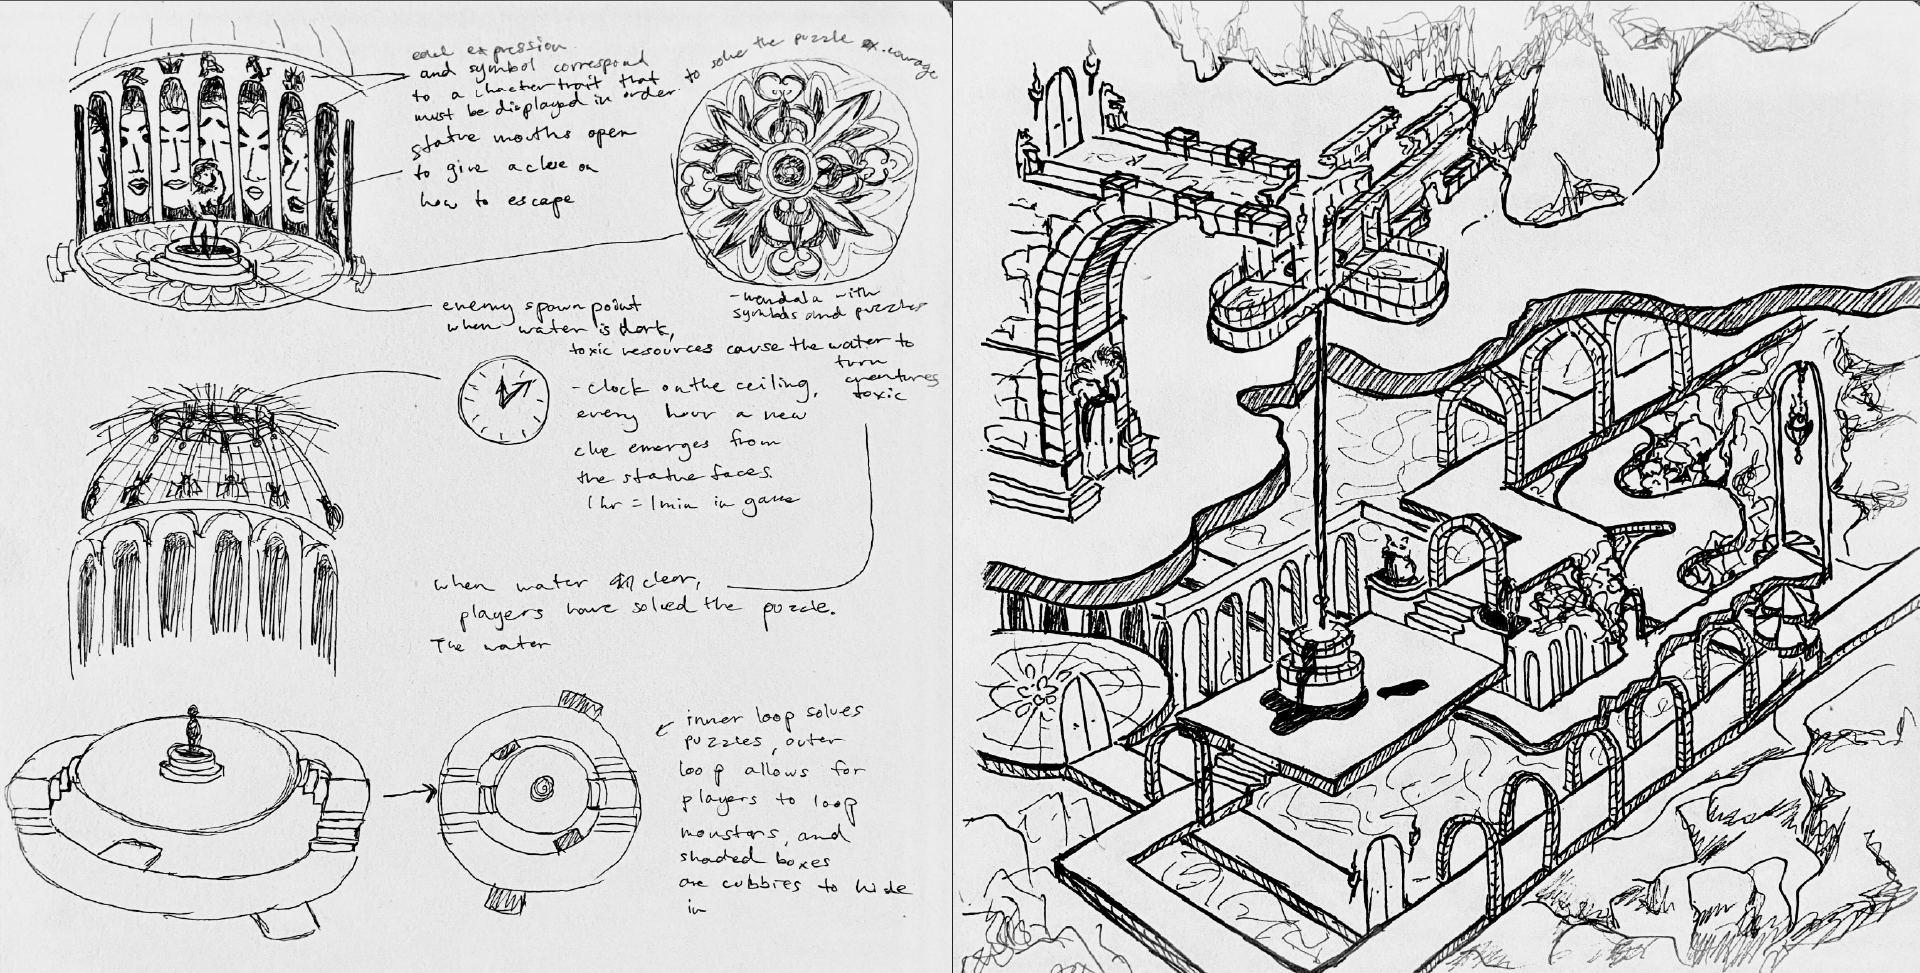 each expression
and symbol correspond
to a chacter trait that
must be displayed in order
to solve the puzzle ex. courage
statue mouths open
to give a clue on
how to escape
- mandala with
symbols and puzzles
enemy spawn point
when water is dark,
toxic resources cause the water to
turn
creatures
toxic
- clock on the ceiling,
every hour a new
clue emerges from
the statue faces.
1 hr = 1 min in game
when water clear,
players have solved the puzzle.
The water
inner loop solves
puzzles, outer
loop allows for
players to loop
monsters, and
shaded boxes
are cubbies to hide
in